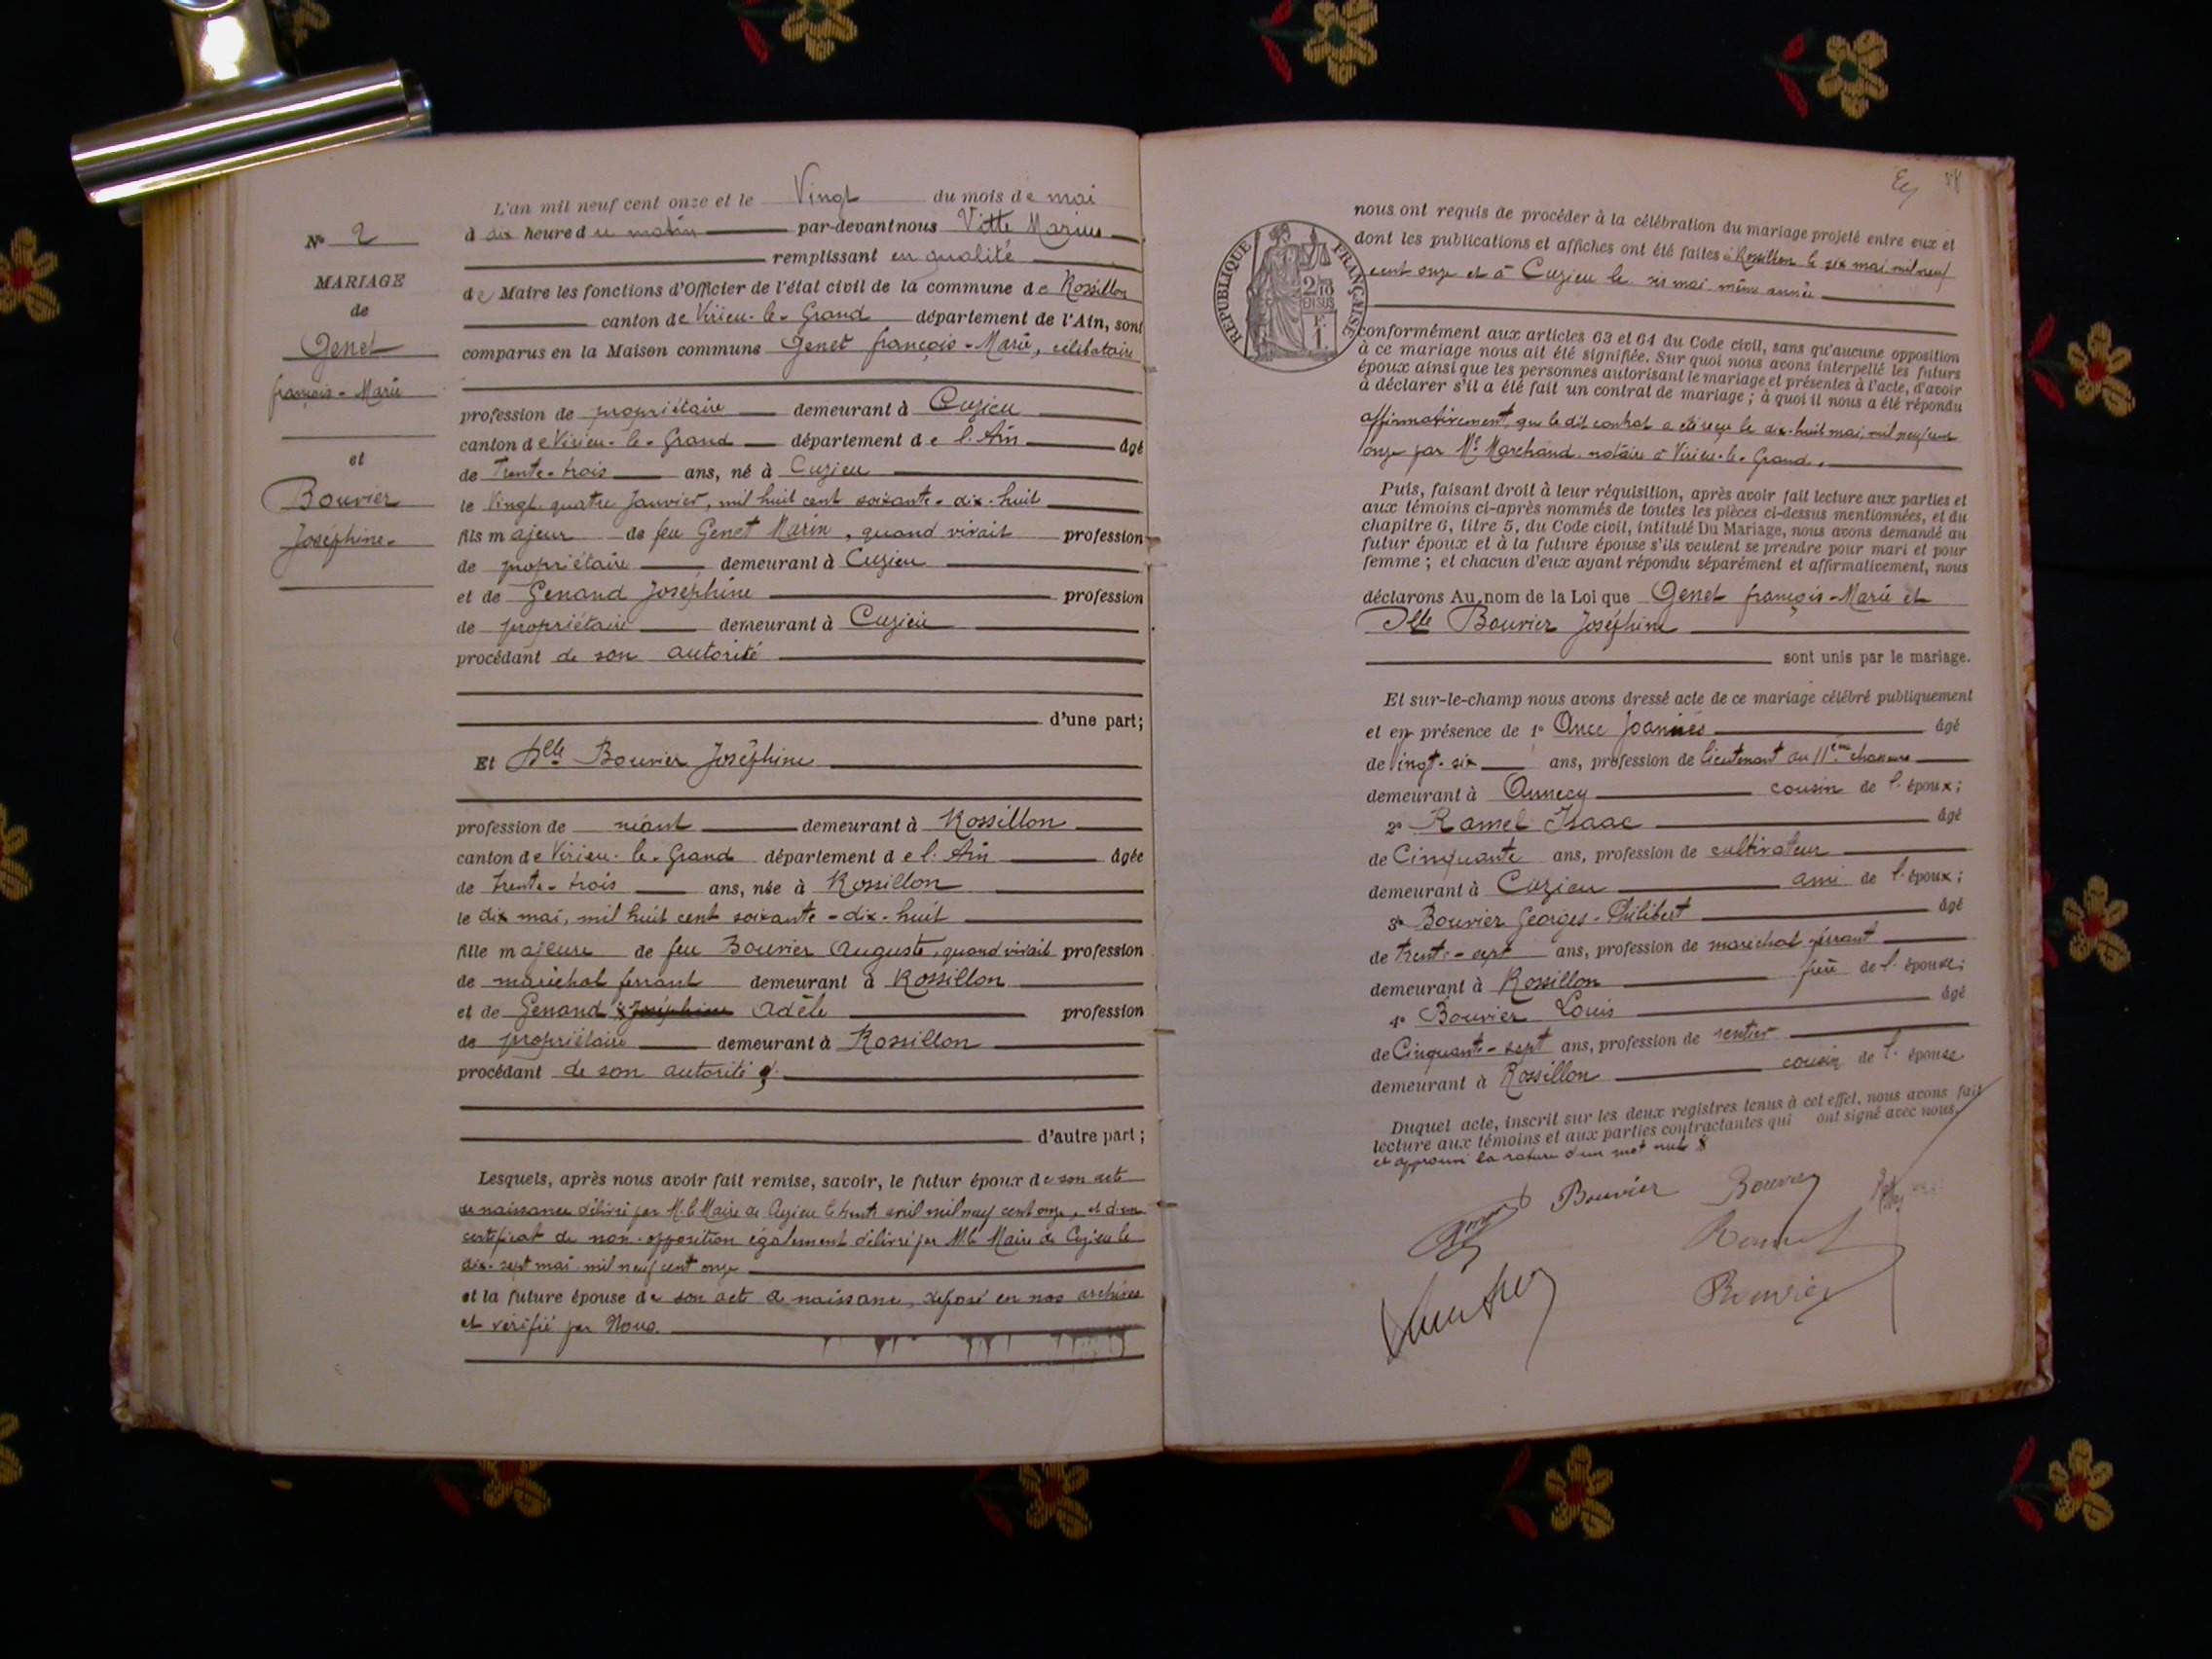 L'an mil neuf cent onze et le Vingt du mois de mai
N° 2
à dix heure du matin par-devant nous Vitte Marius
remplissant en qualité
MARIAGE
de Maire les fonctions d'Officier de l'état civil de la commune de Rossillon
de
canton de Virieu-le-Grand département de l'Ain, sont
Genet
comparus en la Maison commune Genet françois-Marie, célibataire
françois-Marie
profession de propriétaire demeurant à Cuzieu
canton de Virieu-le-Grand département de l'Ain âgé
et
de Trente-trois ans, né à Cuzieu
Bouvier
le Vingt-quatre Janvier, mil huit cent soixante-dix-huit
Joséphine
fils majeur de feu Genet Marin, quand vivait profession
de propriétaire demeurant à Cuzieu
et de Genand Joséphine profession
de propriétaire demeurant à Cuzieu
procédant de son autorité
d'une part;
Et Dlle Bouvier Joséphine
profession de néant demeurant à Rossillon
canton de Virieu-le-Grand département de l'Ain âgée
de trente-trois ans, née à Rossillon
le dix mai, mil huit cent soixante-dix-huit
fille majeure de feu Bouvier Auguste, quand vivait profession
de maréchal ferrant demeurant à Rossillon
et de Genand Joséphine Adèle profession
de propriétaire demeurant à Rossillon
procédant de son autorité
d'autre part;
Lesquels, après nous avoir fait remise, savoir, le futur époux de son acte
de naissance délivré par M. le Maire de Cuzieu le trente avril mil neuf cent onze, et d'un
certificat de non-opposition également délivré par M. le Maire de Cuzieu le
dix-sept mai mil neuf cent onze
et la future épouse de son acte de naissance, déposé en nos archives
et vérifié par Nous.
nous ont requis de procéder à la célébration du mariage projeté entre eux et
dont les publications et affiches ont été faites à Rossillon le six mai mil neuf
cent onze et à Cuzieu le six mai même année
REPUBLIQUE FRANÇAISE
2/10
EN SUS
F.
1.
conformément aux articles 63 et 64 du Code civil, sans qu'aucune opposition
à ce mariage nous ait été signifiée. Sur quoi nous avons interpellé les futurs
époux ainsi que les personnes autorisant le mariage et présentes à l'acte, d'avoir
à déclarer s'il a été fait un contrat de mariage; à quoi il nous a été répondu
affirmativement, que le dit contrat a été reçu le dix-huit mai, mil neuf cent
onze par Me Marchand notaire à Virieu-le-Grand.
Puis, faisant droit à leur réquisition, après avoir fait lecture aux parties et
aux témoins ci-après nommés de toutes les pièces ci-dessus mentionnées, et du
chapitre 6, titre 5, du Code civil, intitulé Du Mariage, nous avons demandé au
futur époux et à la future épouse s'ils veulent se prendre pour mari et pour
femme; et chacun d'eux ayant répondu séparément et affirmativement, nous
déclarons Au nom de la Loi que Genet françois-Marie et
Dlle Bouvier Joséphine
sont unis par le mariage.
Et sur-le-champ nous avons dressé acte de ce mariage célébré publiquement
et en présence de 1° Joannès âgé
de Vingt-six ans, profession de lieutenant au 11ème chasseurs
demeurant à Annecy cousin de l'époux;
2° Ramel Isaac âgé
de Cinquante ans, profession de cultivateur
demeurant à Cuzieu ami de l'époux;
3° Bouvier Georges-Philibert âgé
de trente-sept ans, profession de maréchal ferrant
demeurant à Rossillon frère de l'épouse;
4° Bouvier Louis âgé
de Cinquante-sept ans, profession de rentier
demeurant à Rossillon cousin de l'épouse
Duquel acte, inscrit sur les deux registres tenus à cet effet, nous avons fait
lecture aux témoins et aux parties contractantes qui ont signé avec nous,
et approuvé la rature d'un mot nul
Bouvier Bouvier
Bouvier